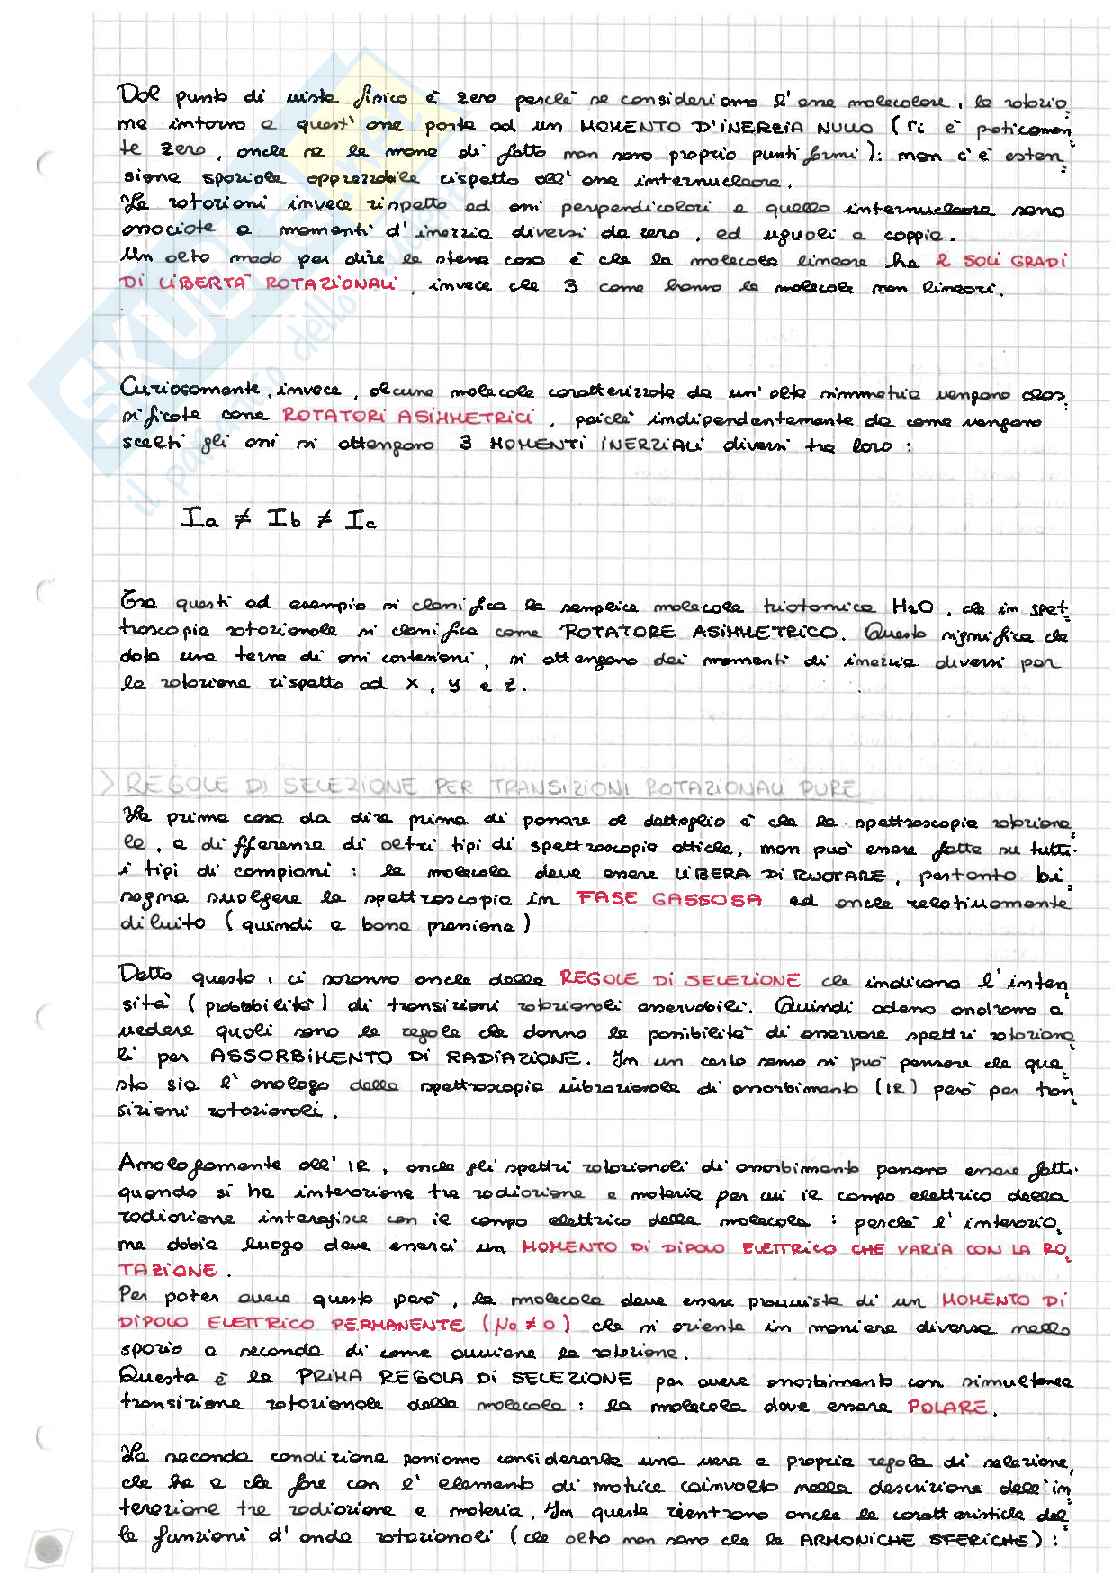 Dal punto di vista fisico è zero perché se consideriamo l'asse molecolare, la rotazio
ne intorno a quest'asse porta ad un MOMENTO D'INERZIA NULLO (ri è praticamen
te zero, anche se le masse di fatto non sono proprio puntiformi): non c'è esten
sione spaziale apprezzabile rispetto all'asse internucleare.
Le rotazioni invece rispetto ad assi perpendicolari a quello internucleare sono
associate a momenti d'inerzia diversi da zero, ed uguali a coppia.
Un altro modo per dire la stessa cosa è che la molecola lineare ha 2 SOLI GRADI
DI LIBERTÀ ROTAZIONALI, invece che 3 come hanno le molecole non lineari.
Curiosamente, invece, alcune molecole caratterizzate da un'alta simmetria vengono clas
sificate come ROTATORI ASIMMETRICI, poiché indipendentemente da come vengono
scelti gli assi si ottengono 3 MOMENTI INERZIALI diversi tra loro:
Ia ≠ Ib ≠ Ic
Tra questi ad esempio si classifica la semplice molecola triatomica H2O, che in spet
troscopia rotazionale si classifica come ROTATORE ASIMMETRICO. Questo significa che
data una terna di assi cartesiani, si ottengono dei momenti di inerzia diversi per
la rotazione rispetto ad x, y e z.
> REGOLE DI SELEZIONE PER TRANSIZIONI ROTAZIONALI PURE
La prima cosa da dire prima di passare al dettaglio è che la spettroscopia rotaziona
le, a differenza di altri tipi di spettroscopia ottica, non può essere fatta su tutti
i tipi di campioni: la molecola deve essere LIBERA DI RUOTARE, pertanto bi
sogna svolgere la spettroscopia in FASE GASSOSA ed anche relativamente
diluito (quindi a bassa pressione)
Detto questo, ci saranno anche delle REGOLE DI SELEZIONE che indicano l'inten
sità (probabilità) di transizioni rotazionali osservabili. Quindi adesso andremo a
vedere quali sono le regole che danno la possibilità di osservare spettri rotaziona
li per ASSORBIMENTO DI RADIAZIONE. In un certo senso si può pensare che que
sto sia l'analogo della spettroscopia vibrazionale di assorbimento (IR) però per tran
sizioni rotazionali.
Analogamente all'IR, anche gli spettri rotazionali di assorbimento possono essere fatti
quando si ha interazione tra radiazione e materia per cui il campo elettrico della
radiazione interagisce con il campo elettrico della molecola: perché l'interazio
ne abbia luogo deve esserci un MOMENTO DI DIPOLO ELETTRICO CHE VARIA CON LA RO
TAZIONE.
Per poter avere questo però, la molecola deve essere provvista di un MOMENTO DI
DIPOLO ELETTRICO PERMANENTE (μ0 ≠ 0) che si orienta in maniera diversa nello
spazio a seconda di come avviene la rotazione.
Questa è la PRIMA REGOLA DI SELEZIONE per avere assorbimento con simultanea
transizione rotazionale della molecola: la molecola deve essere POLARE.
La seconda condizione possiamo considerarla una vera e propria regola di selezione,
che ha a che fare con l'elemento di matrice coinvolto nella descrizione dell'in
terazione tra radiazione e materia. In questa rientrano anche le caratteristiche del
le funzioni d'onda rotazionali (che altro non sono che le ARMONICHE SFERICHE):